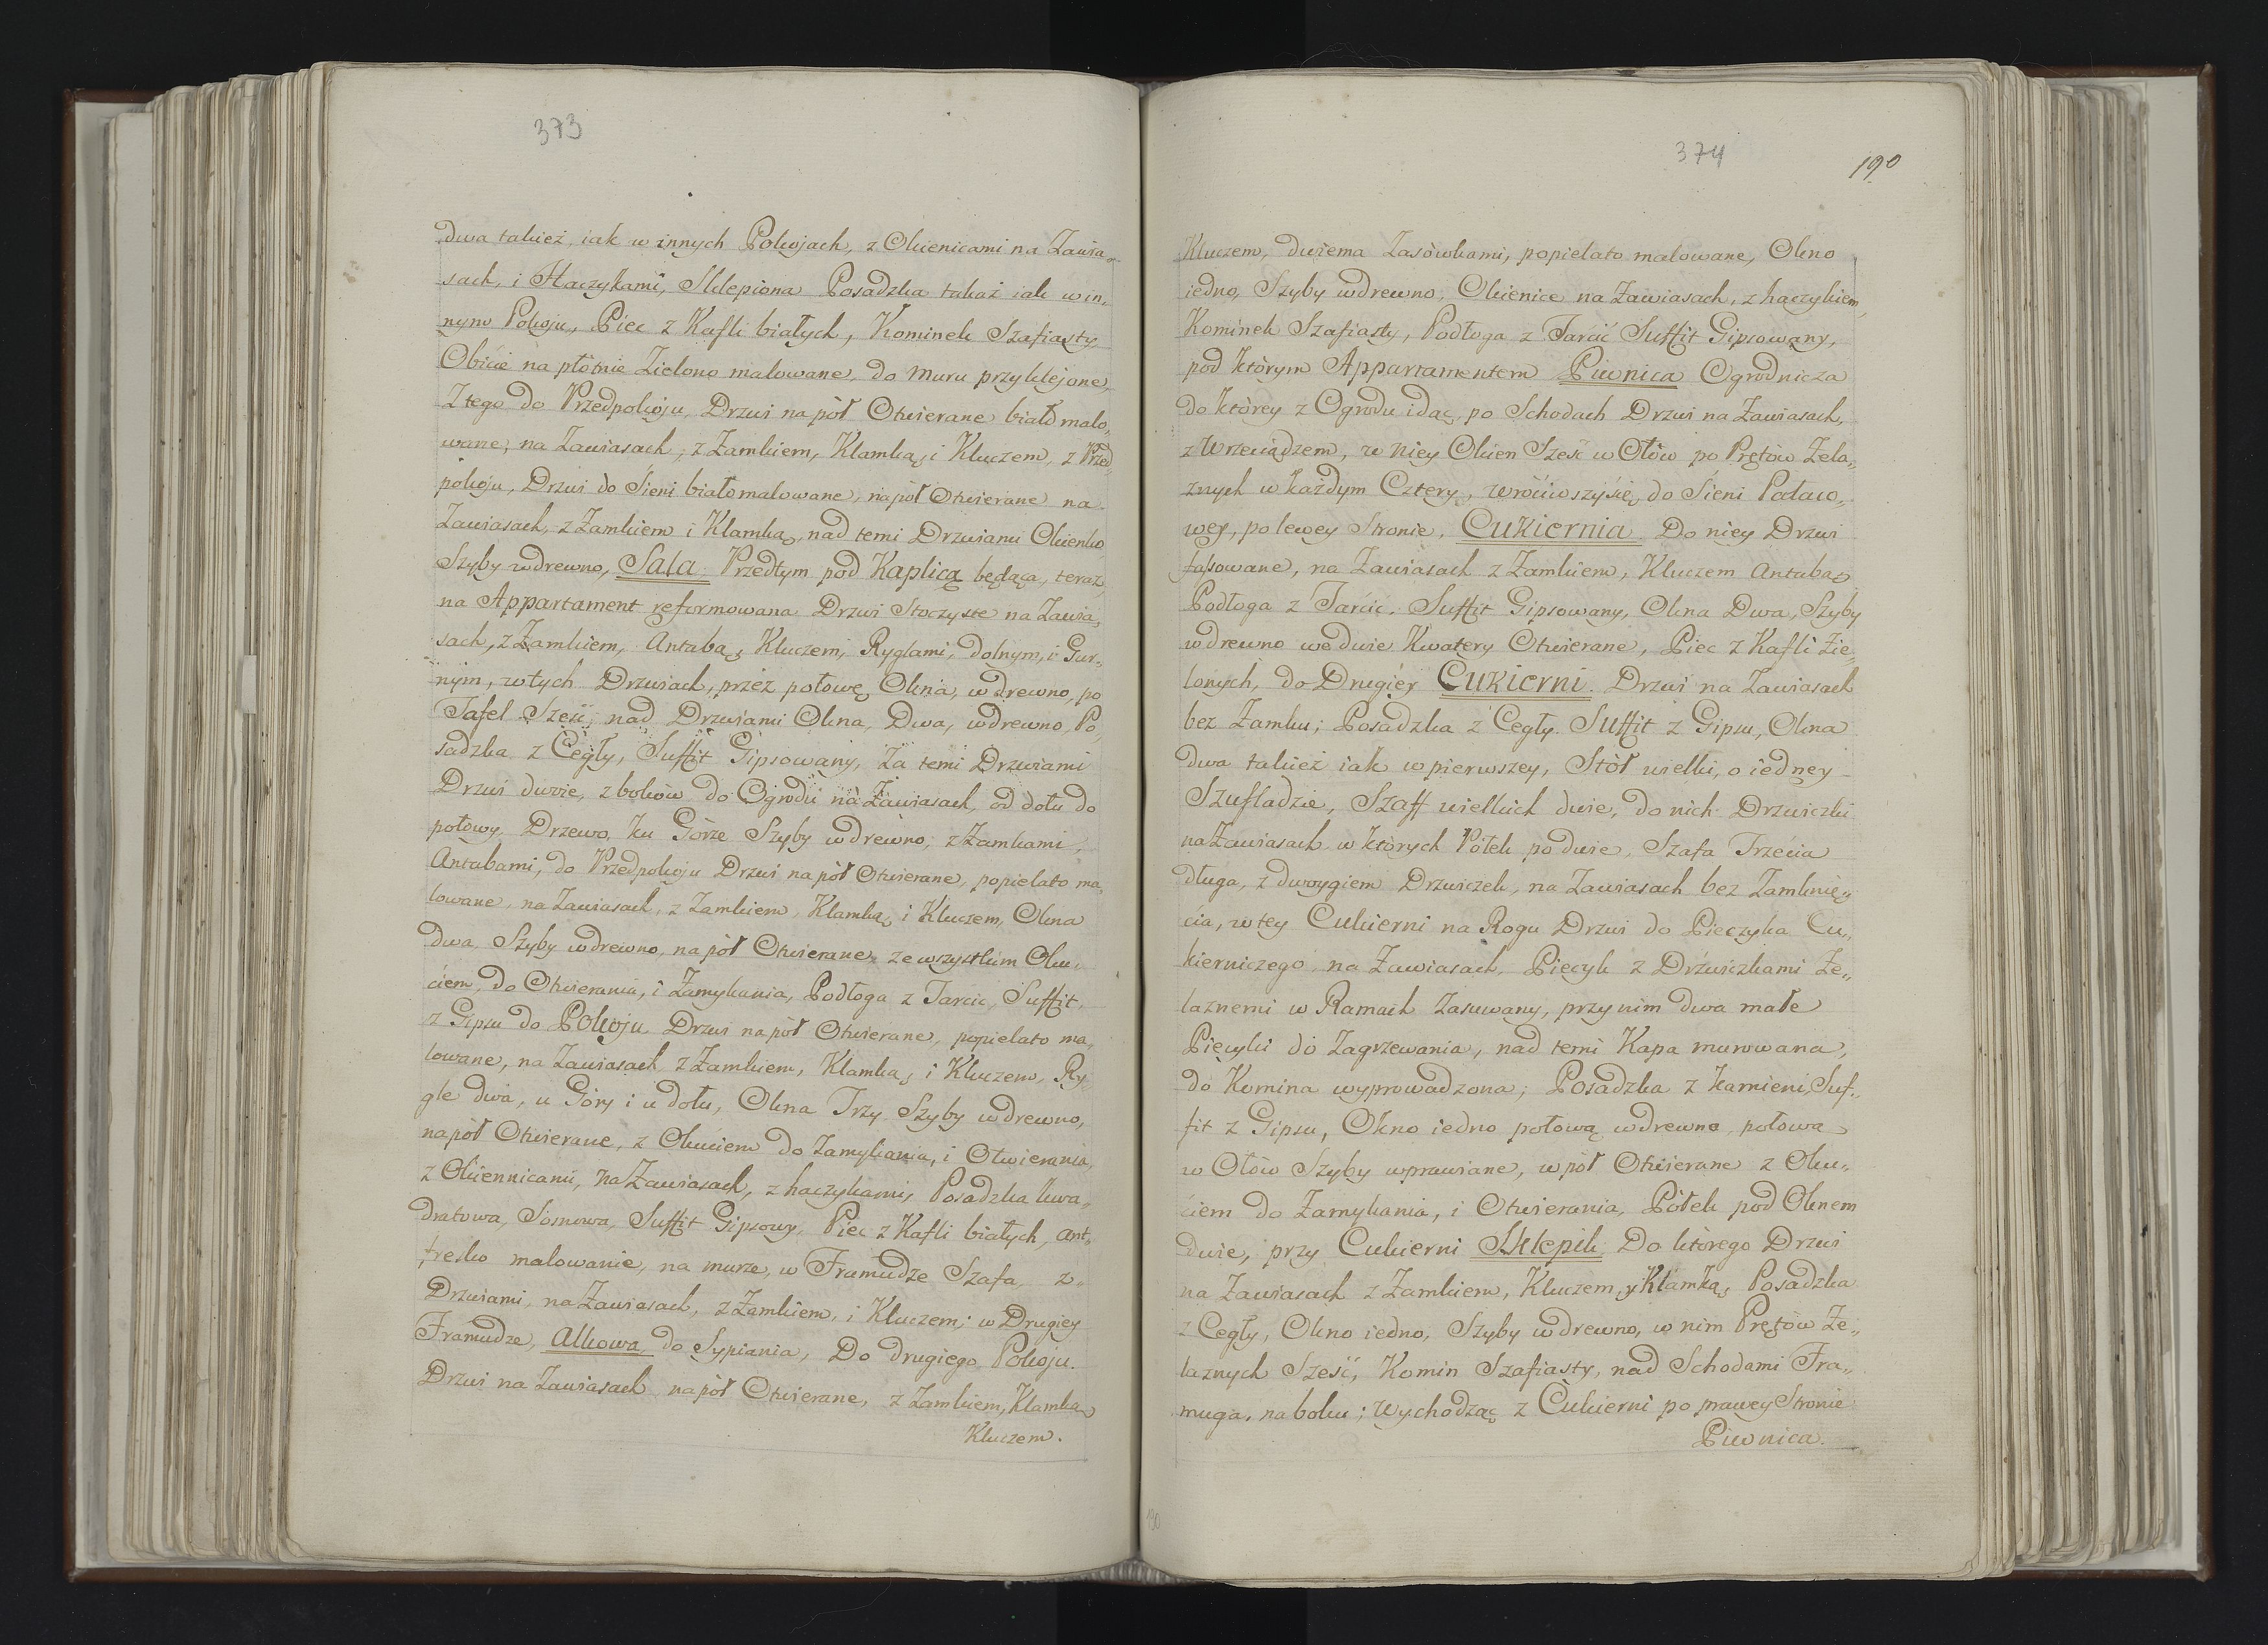 373
dwa takież, iak w innych Pokojach, z Okienicami na Zawia„
sach, i Haczykami, Sklepiona Posadzka takaż iak w in„
nym Pokoju, Piec z Kafli białych, Kominek Szafiasty,
Obicie na płótnie Zielono malowane, do muru przyklejone,
Z tego do Przedpokoju, Drzwi na pół Otwierane biało malo„
wane, na Zawiasach, z Zamkiem, Klamką, i Kluczem, z Przed
pokoju, Drzwi do Sieni biało malowane, na pół Otwierane na
Zawiasach, z Zamkiem i Klamką, nad temi Drzwiami Okienko
Szyby w drewno, Sala Przedtym pod Kaplicą będąca, teraz
na Appartament reformowana Drzwi Stoczyste na Zawia„
sach, z Zamkiem, Antabą, Kluczem, Ryglami, dolnym, i Gur„
nym, w tych Drzwiach, przez połowę Okna, w drewno, po
Tafel Sześć, nad Drzwiami Okna, Dwa, w drewno, Po„
sadzka z Cegły, Suffit Gipsowany, Za temi Drzwiami
Drzwi dwoie, z boków do Ogrodu na Zawiasach, od dołu do
połowy, Drzewo, ku Górze Szyby w drewno, z Zamkami,
Antabami, do Przedpokoju Drzwi na pół Otwierane, popielato ma„
lowane, na Zawiasach, z Zamkiem, Klamką, i Kluczem, Okna
dwa, Szyby w drewno, na pół Otwierane, ze wszystkim Oku„
ciem, do Otwierania, i Zamykania, Podłoga z Tarcic, Suffit,
z Gipsu do Pokoju Drzwi na pół Otwierane, popielato ma„
lowane, na Zawiasach, z Zamkiem, Klamką, i Kluczem, Ry„
gle dwa, u Góry i u dołu, Okna Trzy Szyby w drewno,
na pół Otwierane, z Okuciem do Zamykania, i Otwierania,
z Okiennicami, na Zawiasach, z haczykami, Posadzka kwa„
dratowa, Sosnowa, Suffit Gipsowy, Piec z Kafli białych, ant„
fresko malowanie, na murze, w Framudze Szafa, z„
Drzwiami, na Zawiasach, z Zamkiem, i Kluczem; w Drugiey
Framudze, Alkowa do Sypiania, Do drugiego Pokoju.
Drzwi na Zawiasach na pół Otwierane, z Zamkiem, Klamką
Kluczem.
374
190
Kluczem, dwiema Zasówkami, popielato malowane, Okno
iedno, Szyby w drewno, Okienice na Zawiasach, z haczykiem,
Kominek Szafiasty, Podłoga z Tarcić Suffit Gipsowany,
pod którym Appartamentem Piwnica Ogrodnicza
do którey z Ogrodu idąc, po Schodach Drzwi na Zawiasach,
z Wrzeciądzem, w niey Okien Sześć w Ołów po Prętów Żela„
znych w każdym Cztery, wróciwszy się do Sieni Pałaco„
wey, po lewey Stronie, Cukiernia Do niey Drzwi
fasowane, na Zawiasach z Zamkiem, Kluczem Antabą
Podłoga z Tarcić, Suffit Gipsowany, Okna Dwa, Szyby
w drewno we dwie Kwatery Otwierane, Piec z Kafli Zie„
lonych, do Drugiéy Cukierni Drzwi na Zawiasach
bez Zamku; Posadzka z Cegły. Suffit z Gipsu, Okna
dwa takież iak w pierwszey, Stół wielki, o iedney
Szufladzie, Szaff wielkich dwie, do nich Drzwiczki
na Zawiasach, w których Półek po dwie, Szafa Trzecia
długa, z dwoygiem Drzwiczek, na Zawiasach bez Zamknię„
cia, w tey Cukierni na Rogu Drzwi do Pieczyka Cu„
kierniczego, na Zawiasach, Piecyk z Drzwiczkami Że„
laznemi w Ramach Zasuwany, przy nim dwa małe
Piecyki do Zagrzewania, nad temi Kapa murowana,
do Komina wyprowadzona; Posadzka z kamieni, Suf„
fit z Gipsu, Okno iedno połową w drewno, połowa
w Ołów Szyby wprawiane, w pół Otwierane z Oku„
ciem do Zamykania, i Otwierania, Półek pod Oknem
dwie, przy Cukierni Sklepik Do którego Drzwi
na Zawiasach z Zamkiem, Kluczem, y Klamką, Posadzka
z Cegły, Okno iedno, Szyby w drewno, w nim Prętów Że„
laznych Sześć, Komin Szafiasty, nad Schodami Fra„
muga, na boku; Wychodząc z Cukierni po prawey Stronie
Piwnica.
190